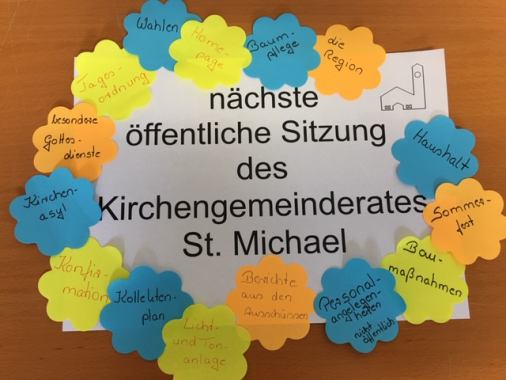 Wahlen
Home-
page
Baum-
pflege
die
Region
Tages-
ordnung
besondere
Gottes-
dienste
Kirchen-
asyl
Konfir-
mation
Kollekten-
plan
Licht-
und Ton-
anlage
Berichte
aus den
Ausschüssen
Personal-
angelegen-
heiten
nicht
öffentlich
Bau-
maßnahmen
Sommer-
fest
Haushalt
nächste
öffentliche Sitzung
des
Kirchengemeinderates
St. Michael